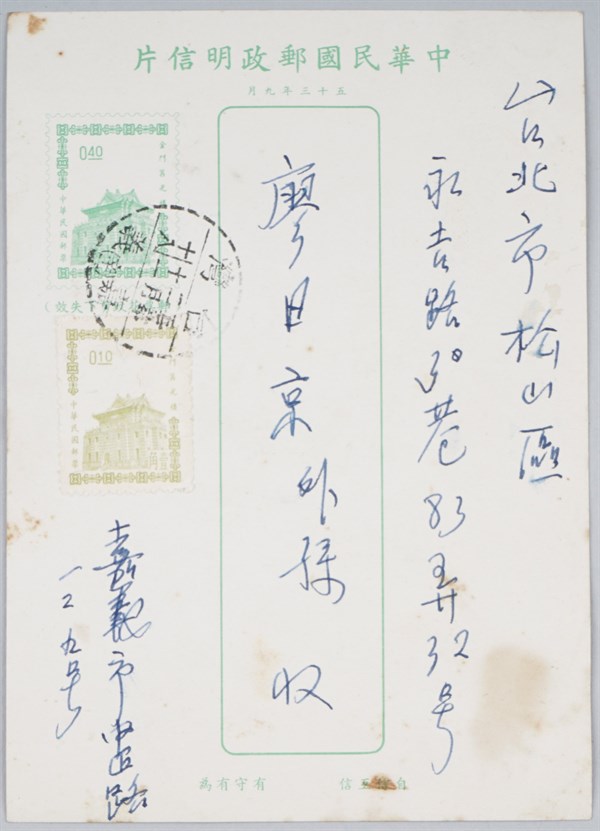 中華民國郵政明信片
五十三年九月
台北市松山區
永吉路30巷83弄32号
廖日京外孫 收
0.40
金門莒光樓
中華民國郵票
失效)
0.10
金門莒光樓
中華民國郵票
台灣
嘉義
嘉義市
路
一二九号
自信互信 有守有為